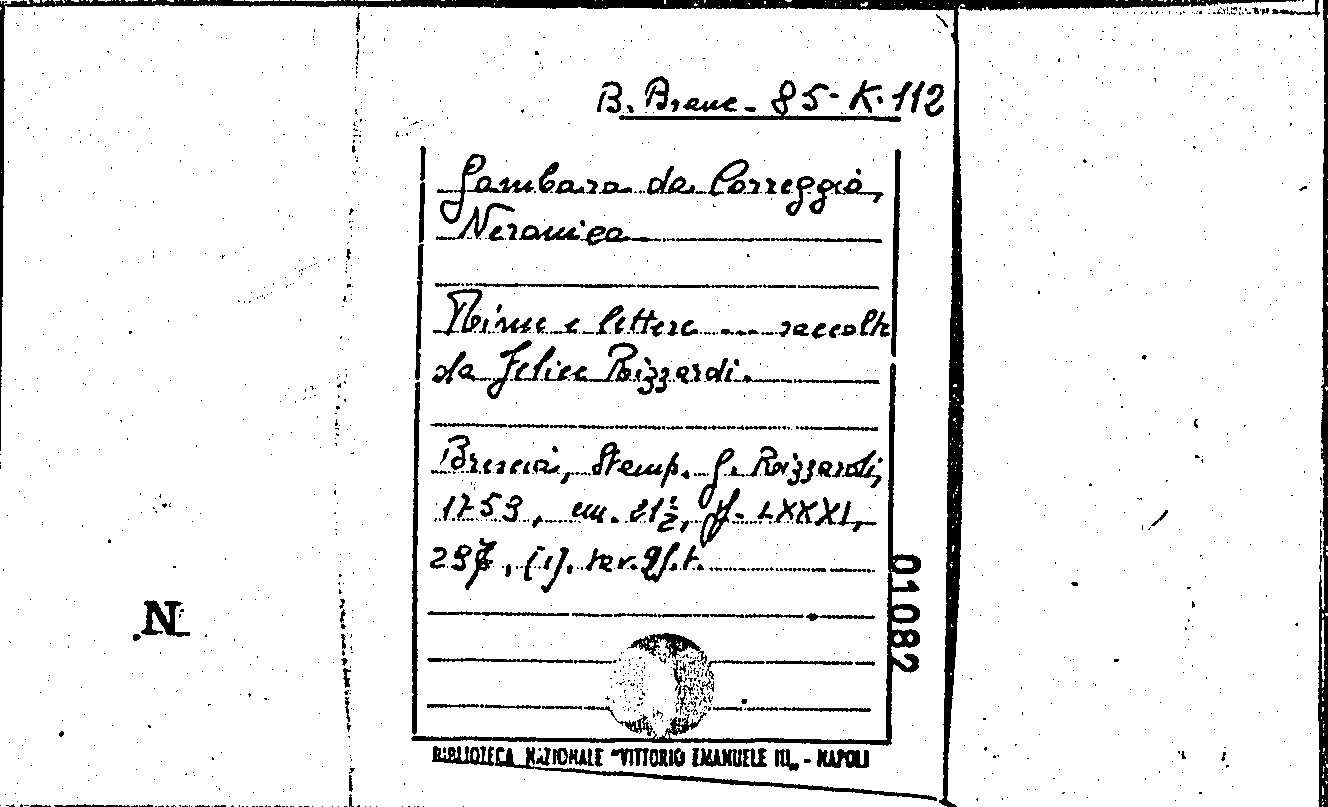 B. Branc. 85-K.112
Gambara da Correggio,
Veronica
Rime e lettere .... raccolte
da Felice Rizzardi.
Brescia, Stemp. G. Rizzardi,
1759, cm. 21½, pp. LXXXI,
297, [1]. tav. 2 f.t.
01082
N
BIBLIOTECA NAZIONALE "VITTORIO EMANUELE III„ - NAPOLI